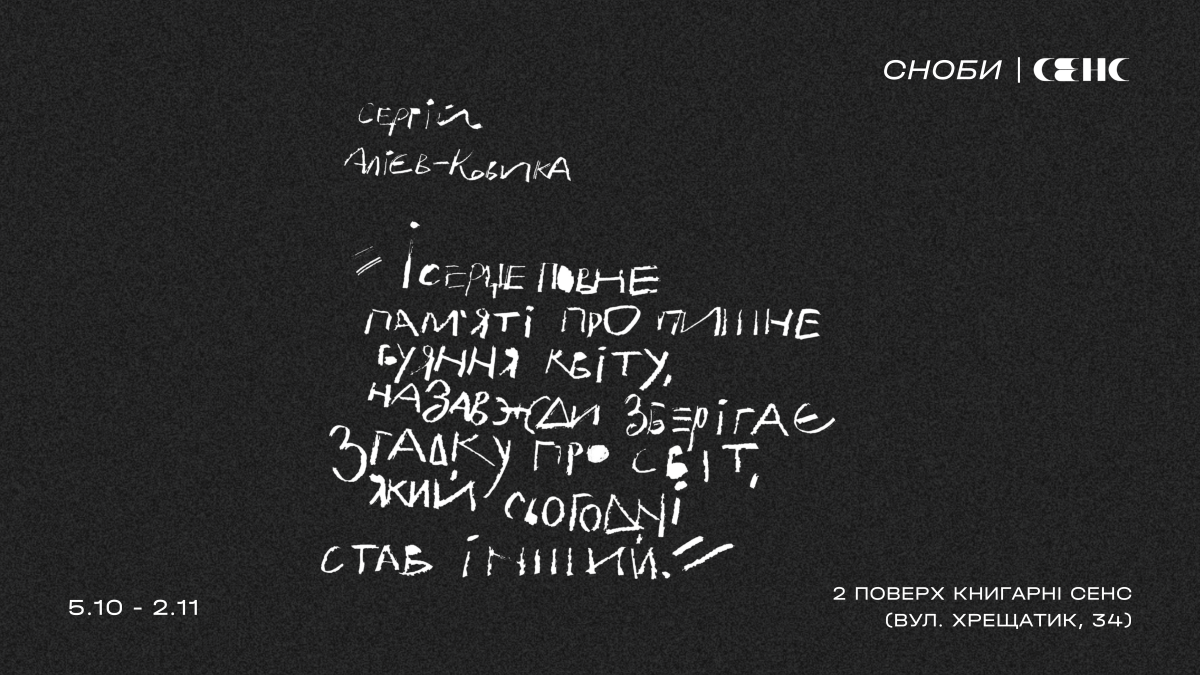 СНОБИ | СЕНС
СЕРГІЙ
АЛІЄВ-КОВИКА
"І СЕРЦЕ ПОВНЕ
ПАМ'ЯТІ ПРО ПИШНЕ
БУЯННЯ КВІТУ,
НАЗАВЖДИ ЗБЕРІГАЄ
ЗГАДКУ ПРО СВІТ,
ЯКИЙ СЬОГОДНІ
СТАВ ІНШИЙ."
5.10 - 2.11
2 ПОВЕРХ КНИГАРНІ СЕНС
(ВУЛ. ХРЕЩАТИК, 34)